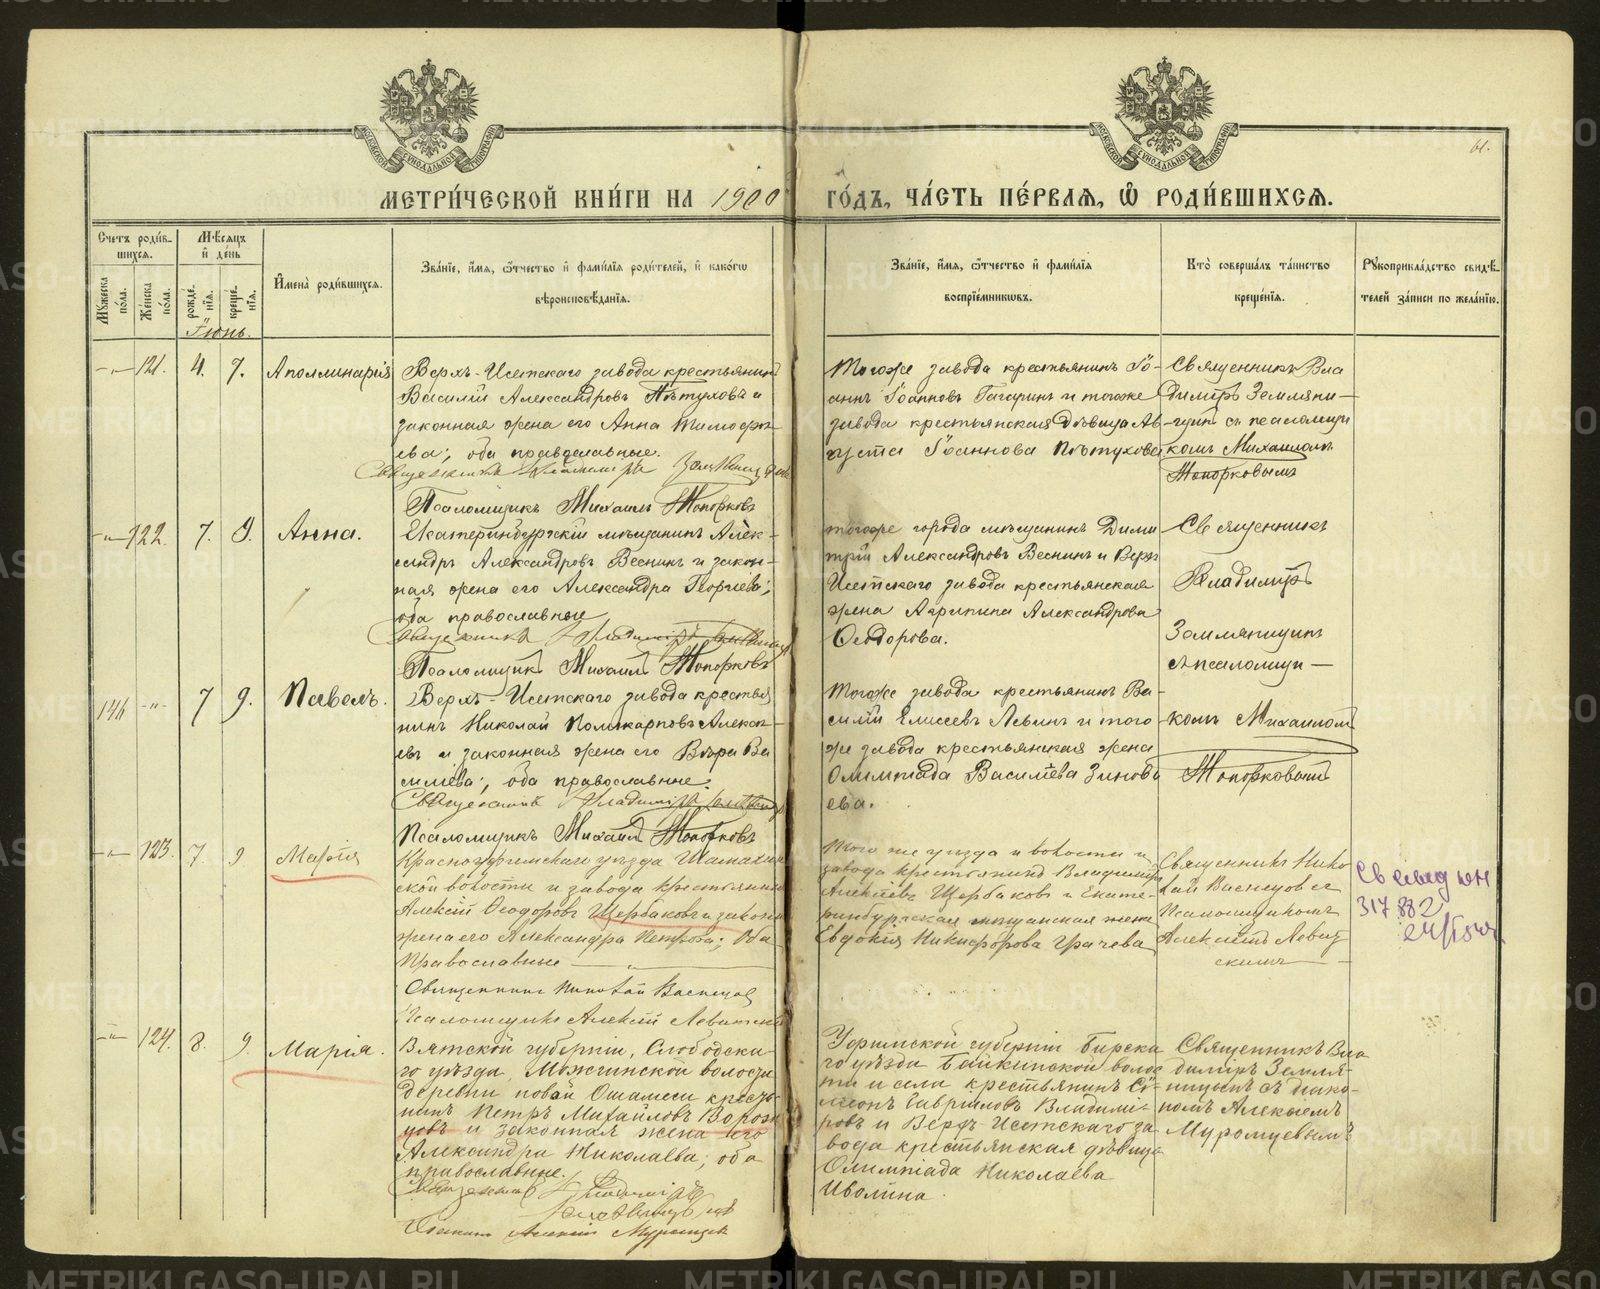 МЕТРИ́ЧЕСКОЙ КНИ́ГИ НА 1900 ГО́ДЪ, ЧА́СТЬ ПЕ́РВАЯ, Ѡ҆ РОДИ́ВШИХСЯ.
61.
Счетъ роди́в-
шихся.
Мѣ́сяцъ
и҆ де́нь
Мꙋ́жеска по́ла.
Же́нска по́ла.
рожде́-нїя.
креще́-нїя.
И҆мена̀ роди́вшихся.
Зва́нїе, и҆́мя, ѻ҆́тчество и҆ фами́лїя роди́телей, и҆ како́гѡ
вѣроисповѣ́данїя.
Зва́нїе, и҆́мя, ѻ҆́тчество и҆ фами́лїя
воспрїе́мникѡвъ.
Кто̀ соверша́лъ та́инство
креще́нїя.
Рꙋкоприкла́дство свидѣ́-
телей за́писи по жела́нїю.
Іюнь.
-"- 121. 4. 7. Аполлинарія
Верхъ-Исетскаго завода крестьянинъ
Василій Александровъ Пѣтуховъ и
законная жена его Анна Тимофѣ-
ева; оба православные.
Священникъ Владиміръ Земляницынъ
Псаломщикъ Михаилъ Топорковъ
Тогоже завода крестьянинъ Іо-
аннъ Іоанновъ Гагаринъ и тогоже
завода крестьянская дѣвица Ав-
густа Іоаннова Пѣтухова
Священникъ Вла
димиръ Земляни-
цынъ съ псаломщи
комъ Михаиломъ
Топорковымъ
-"- 122. 7. 9. Анна.
Екатеринбургскій мѣщанинъ Алек-
сандръ Александровъ Веснинъ и закон-
ная жена его Александра Георгіева;
оба православные
Священникъ Владиміръ Земляницынъ
Псаломщикъ Михаилъ Топорковъ
тогоже города мѣщанинъ Дими
трій Александровъ Веснинъ и Верхъ
Исетскаго завода крестьянская
жена Агрипина Александрова
Ѳеодорова.
Священникъ
Владимиръ
Земляницын
съ псаломщи-
146 -"- 7 9. Павелъ.
Верхъ-Исетскаго завода крестья
нинъ Николай Поликарповъ Алексѣ-
евъ и законная жена его Вѣра Ва
сильева; оба православные.
Священникъ Владиміръ Земляницынъ
Псаломщикъ Михаилъ Топорковъ
Тогоже завода крестьянинъ Ва-
силій Елисеевъ Левинъ и того
же завода крестьянская жена
Олимпіада Васильева Зиновь
ева.
комъ Михаиломъ
Топорковымъ
-"- 123. 7. 9 Марія
Красноуфимскаго уѣзда Шамахин
ской волости и завода крестьянинъ
Алексій Ѳеодоровъ Щербаковъ и законн
жена его Александра Петрова; оба
Православные
Священникъ Николай Васнецовъ
Псаломщикъ Алексій Левитскій
Того же уѣзда и волости и
завода крестьянинъ Владиміръ
Алексѣевъ Щербаковъ и Екате-
ринбургская мѣщанская жена
Евдокія Никифорова Грачева
Священникъ Нико
лай Васнецовъ съ
Псаломщикомъ
Алексіемъ Левит
скимъ
317 882
-"- 124. 8. 9. Марія.
Вятской губерніи, Слободска-
го уѣзда,
деревни новой
нинъ Петръ Михайловъ Ворон
цовъ и законная жена его
Александра Николаева; оба
православные.
Священникъ Владиміръ
Земляницынъ
Діаконъ Алексій Муромцевъ
Уфимской губерніи Бирска
го уѣзда Байкинской волос
ти и села крестьянинъ Сѵ-
меонъ Гавриловъ Владимі-
ровъ и Верхъ-Исетскаго за
вода крестьянская дѣвица
Олимпіада Николаева
Иволина.
Священникъ Вла
димиръ Земля-
ницынъ съ діако-
номъ Алексіемъ
Муромцевымъ
METRIKI.GASO-URAL.RU